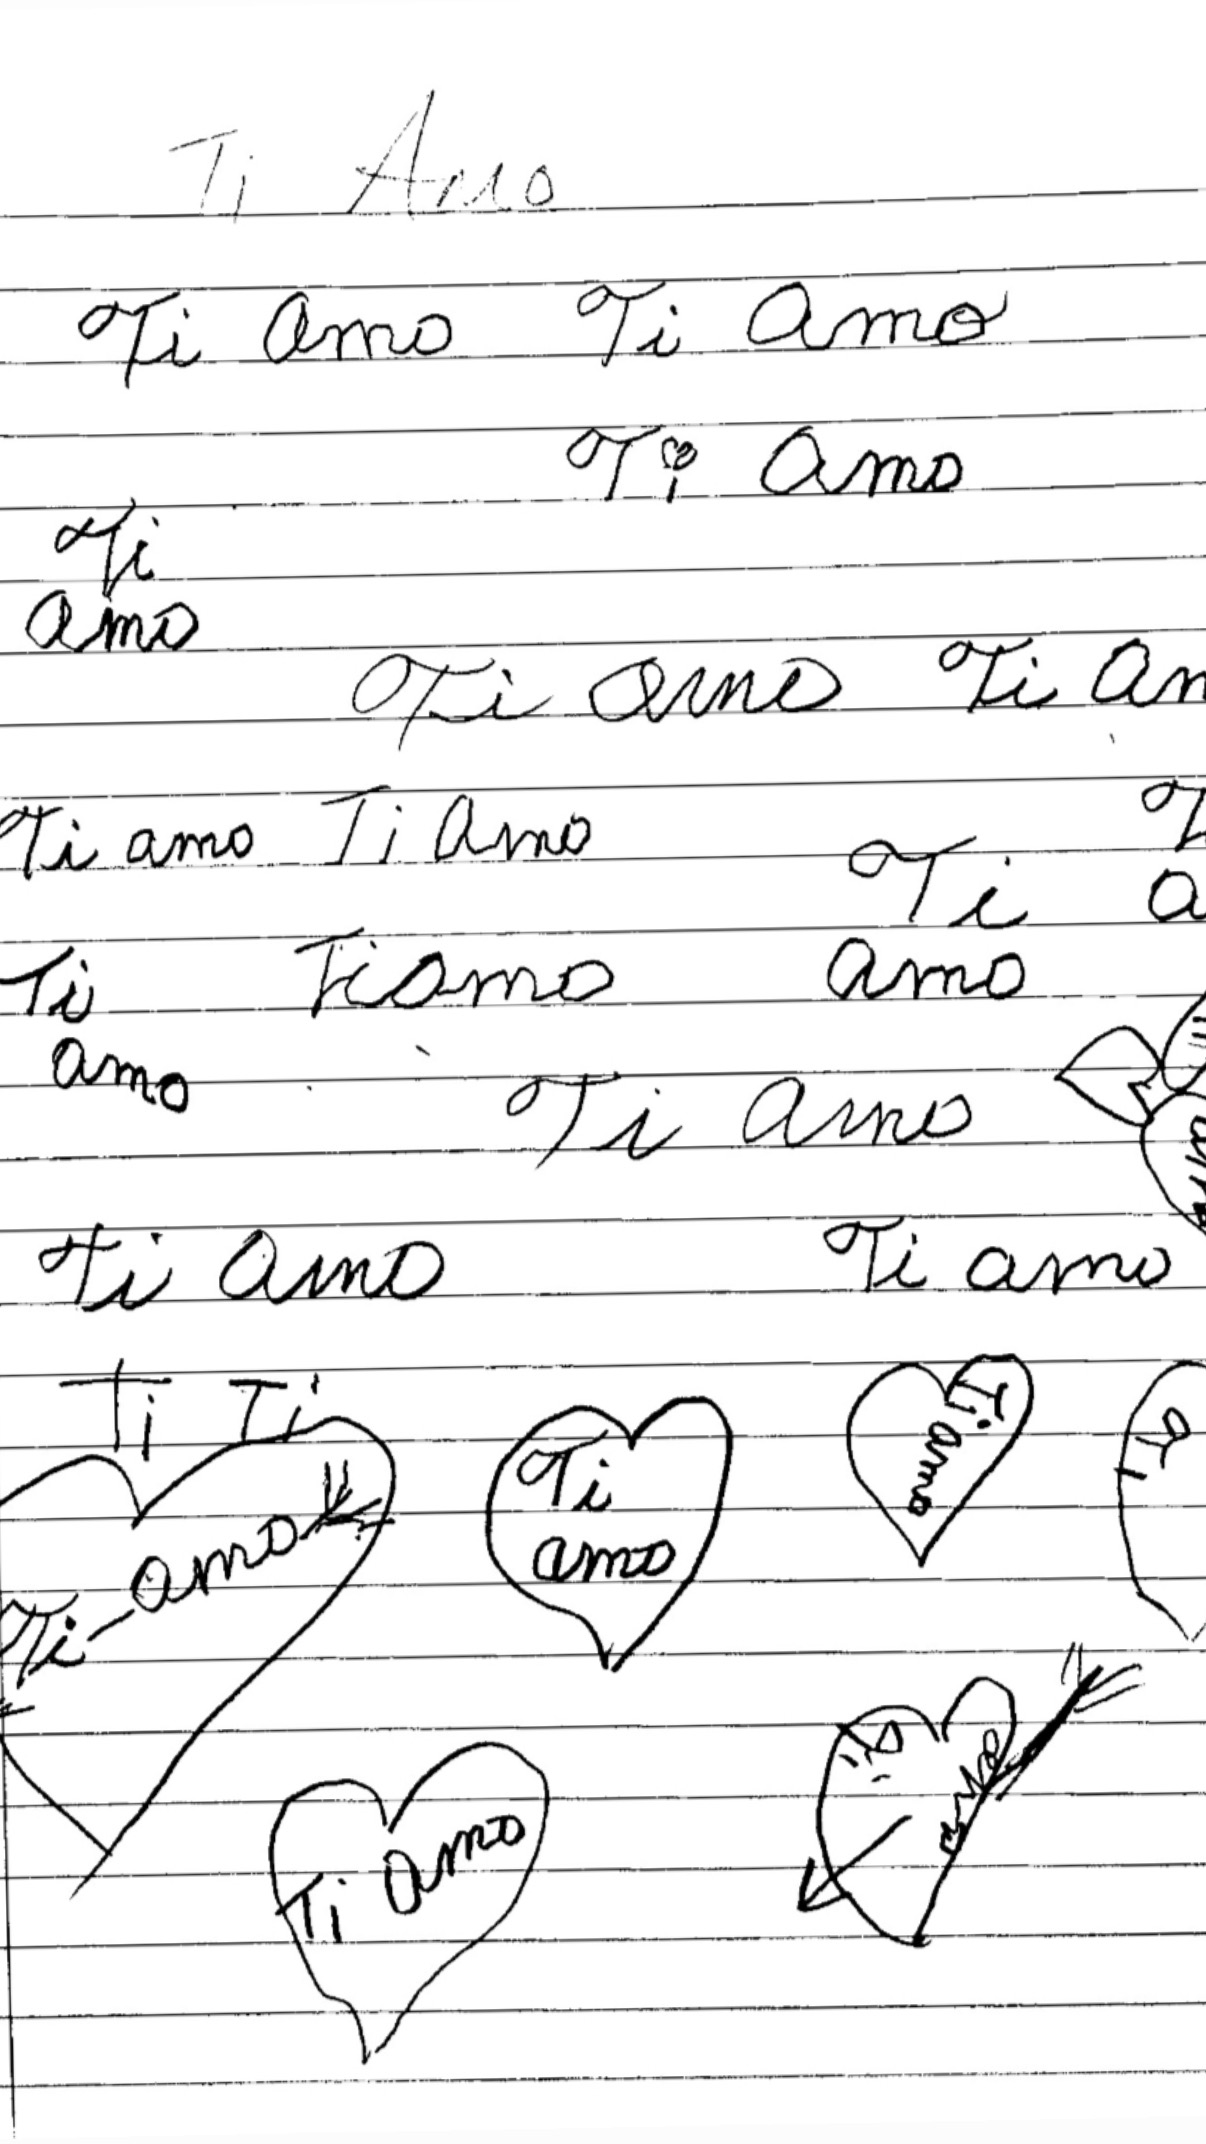 Ti Amo
Ti Amo Ti Amo
Ti Amo
Ti
amo
Ti amo Ti Am
Ti amo Ti Amo
Ti
amo
Ti
amo
Tiamo
Ti Amo
Ti Amo
Ti amo
Ti Ti
Ti-amo
Ti
amo
Ti amo
Ti amo
amo